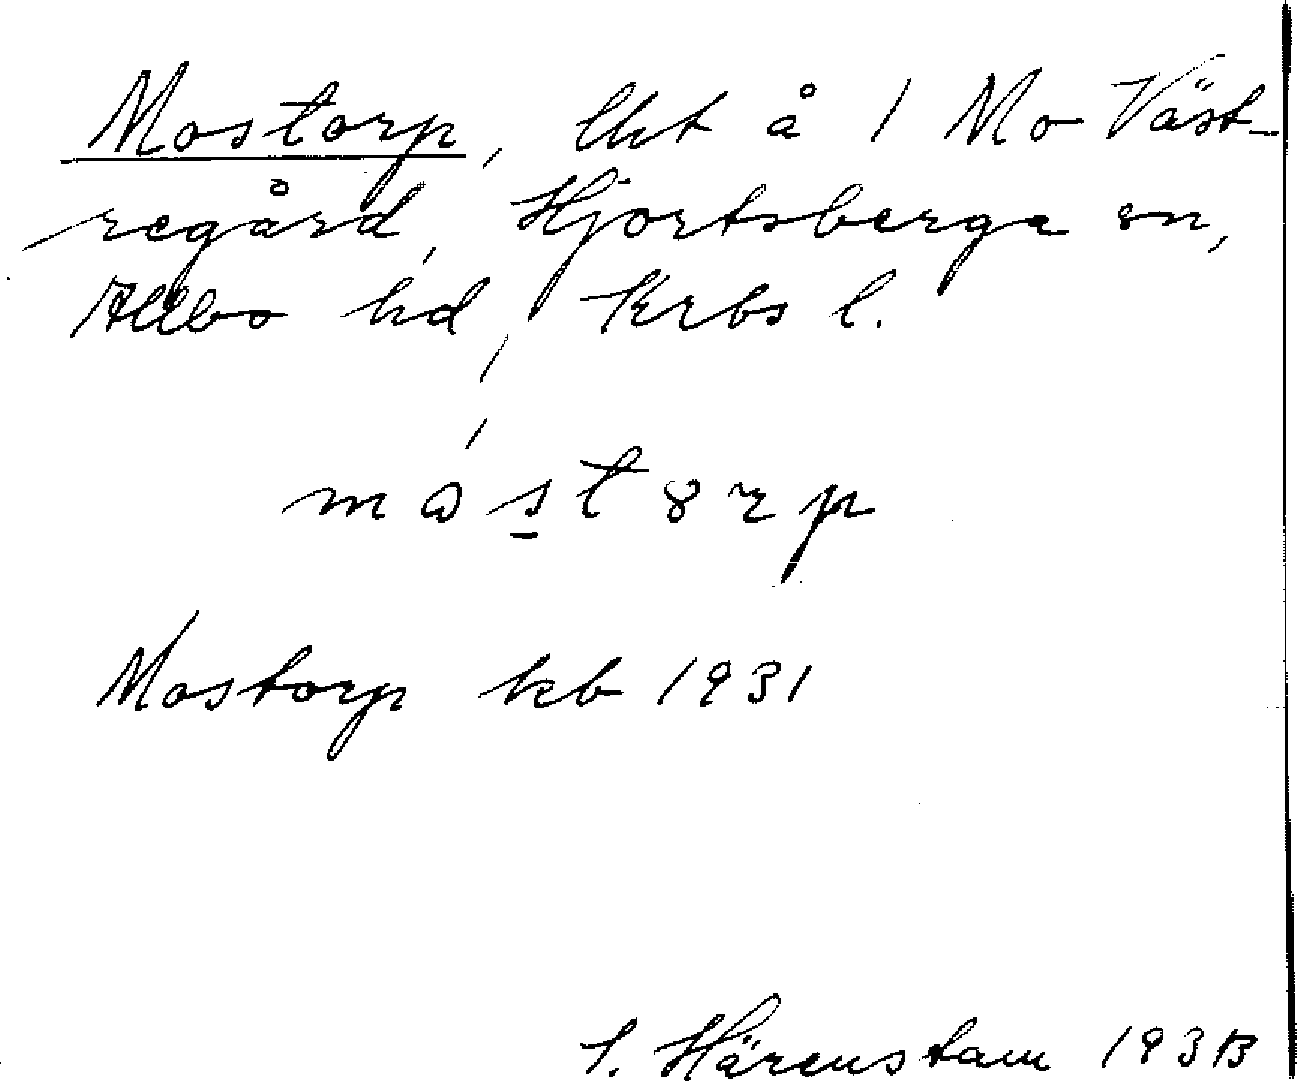 Mostorp, lht å 1 Mo Väst-
regård, Hjortsberga sn,
Allbo hd, Krbs l.
Mostorp kb 1931
S. Härenstam 193